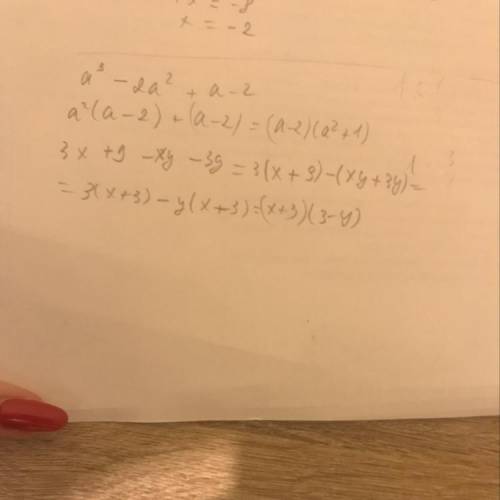 x = -8
x = -2
a³ - 2a² + a - 2
a²(a - 2) + (a - 2) = (a - 2)(a² + 1)
3x + 9 - xy - 3y = 3(x + 9) - (xy + 3y) =
= 3(x + 3) - y(x + 3) = (x + 3)(3 - y)